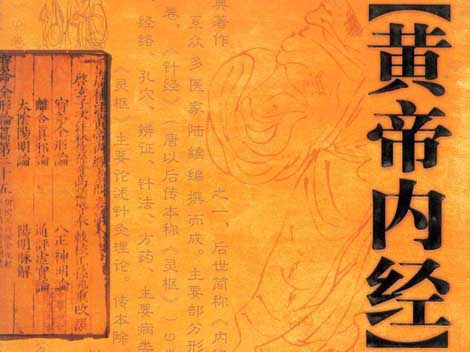 【黄帝内经】
典著作
之一,后世简称 内
众多医家陆续编撰而成。主要部分形
卷,《针经》(唐以后传本称《灵枢》)9
经络 孔穴、辨证 针法 方药 主要病类
灵枢》主要论述针灸理论 传本除
啓玄子次注林億孫奇高保衡等奉敕校正孫兆重改誤
寶命全形論 八正神明論
離合真邪論 通評虛實論
太陰陽明論 陽明脉解
寶命全形論篇第二十五